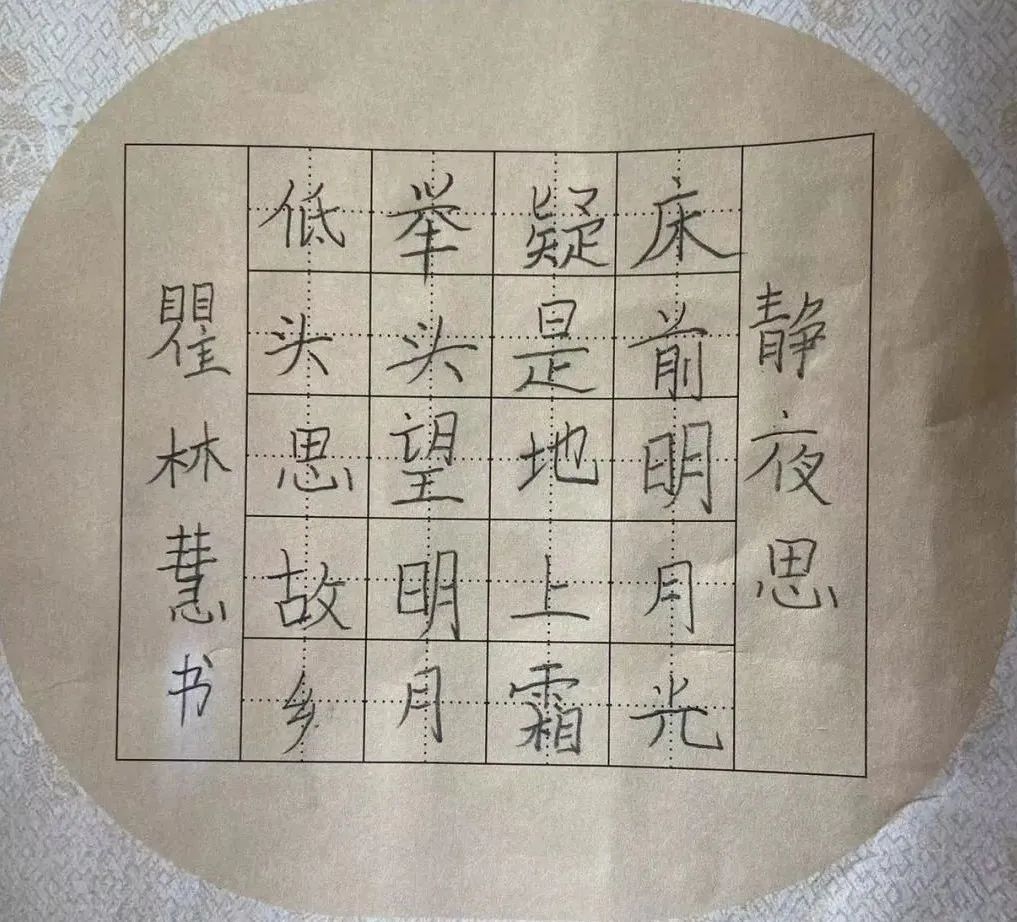 静夜思
床前明月光
疑是地上霜
举头望明月
低头思故乡
瞿林慧书